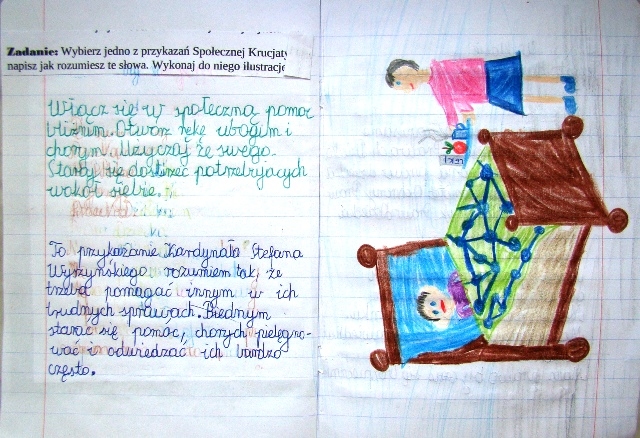 Zadanie: Wybierz jedno z przykazań Społecznej Krucjaty
napisz jak rozumiesz te słowa. Wykonaj do niego ilustrację
Włącz się w społeczną pomoc
bliźnim. Otwórz rękę ubogim i
chorym. Użyczaj ze swego.
Staraj się dostrzec potrzebujących
wokół siebie.
To przykazanie Kardynała Stefana
Wyszyńskiego rozumiem tak, że
trzeba pomagać innym w ich
trudnych sprawach. Biednym
starać się pomóc, chorych pielęgno-
wać i odwiedzać ich bardzo
często.